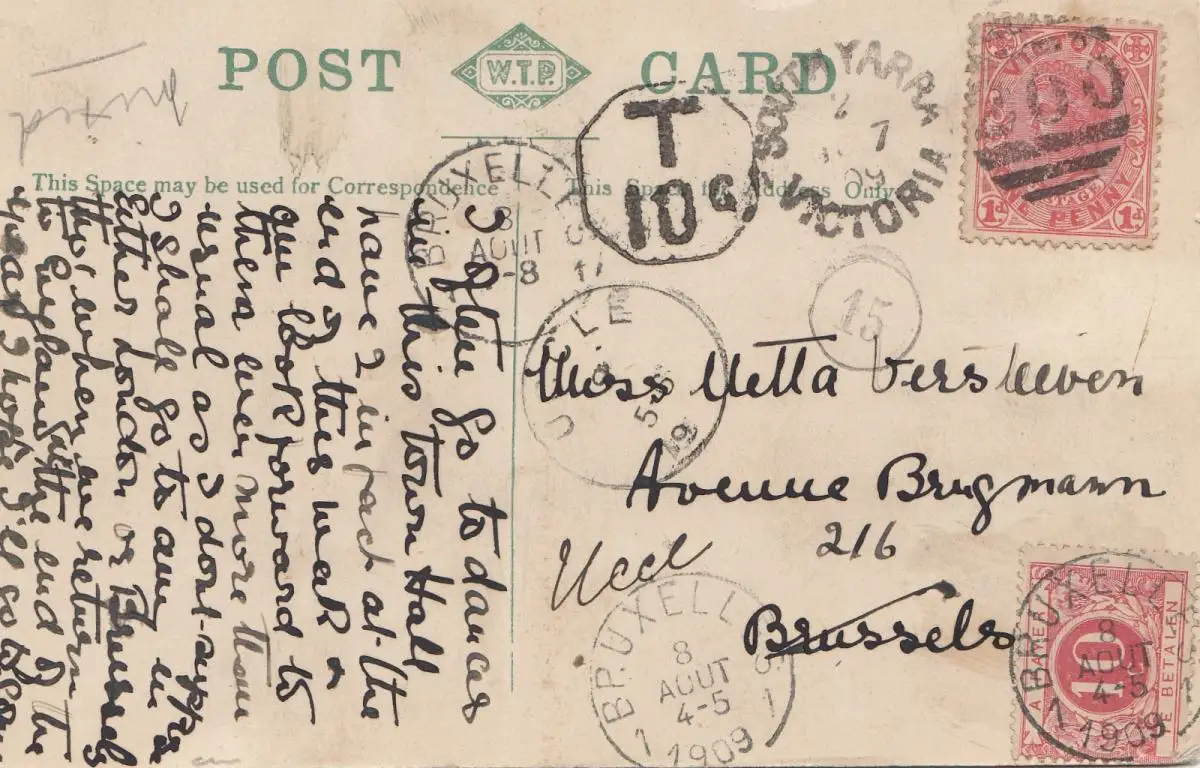 POST CARD
W.T.P.
This Space may be used for Correspondence
This Space for Address Only
T
10 c
SOUTH YARRA
7
09
VICTORIA
VICTORIA
POSTAGE
ONE PENNY
1d 1d
BRUXELLES
8
AOUT
-8
15
UCCLE
Miss Netta
Avenue Brugmann
216
Uccl
Brussels
BRUXELLES
8
AOUT
4-5
1909
1
BRUXELLES
8
AOUT
4-5
1909
1
A PAYER
10
TE BETALEN
I often go to dances
in this Town Hall
have 2 in fact at the
end of this week &
am look forward to
them even more than
usual as I don't suppose
I shall go to any in
either London or Brussels
this, when we return
to England at the end of the
year I hope I'll go to